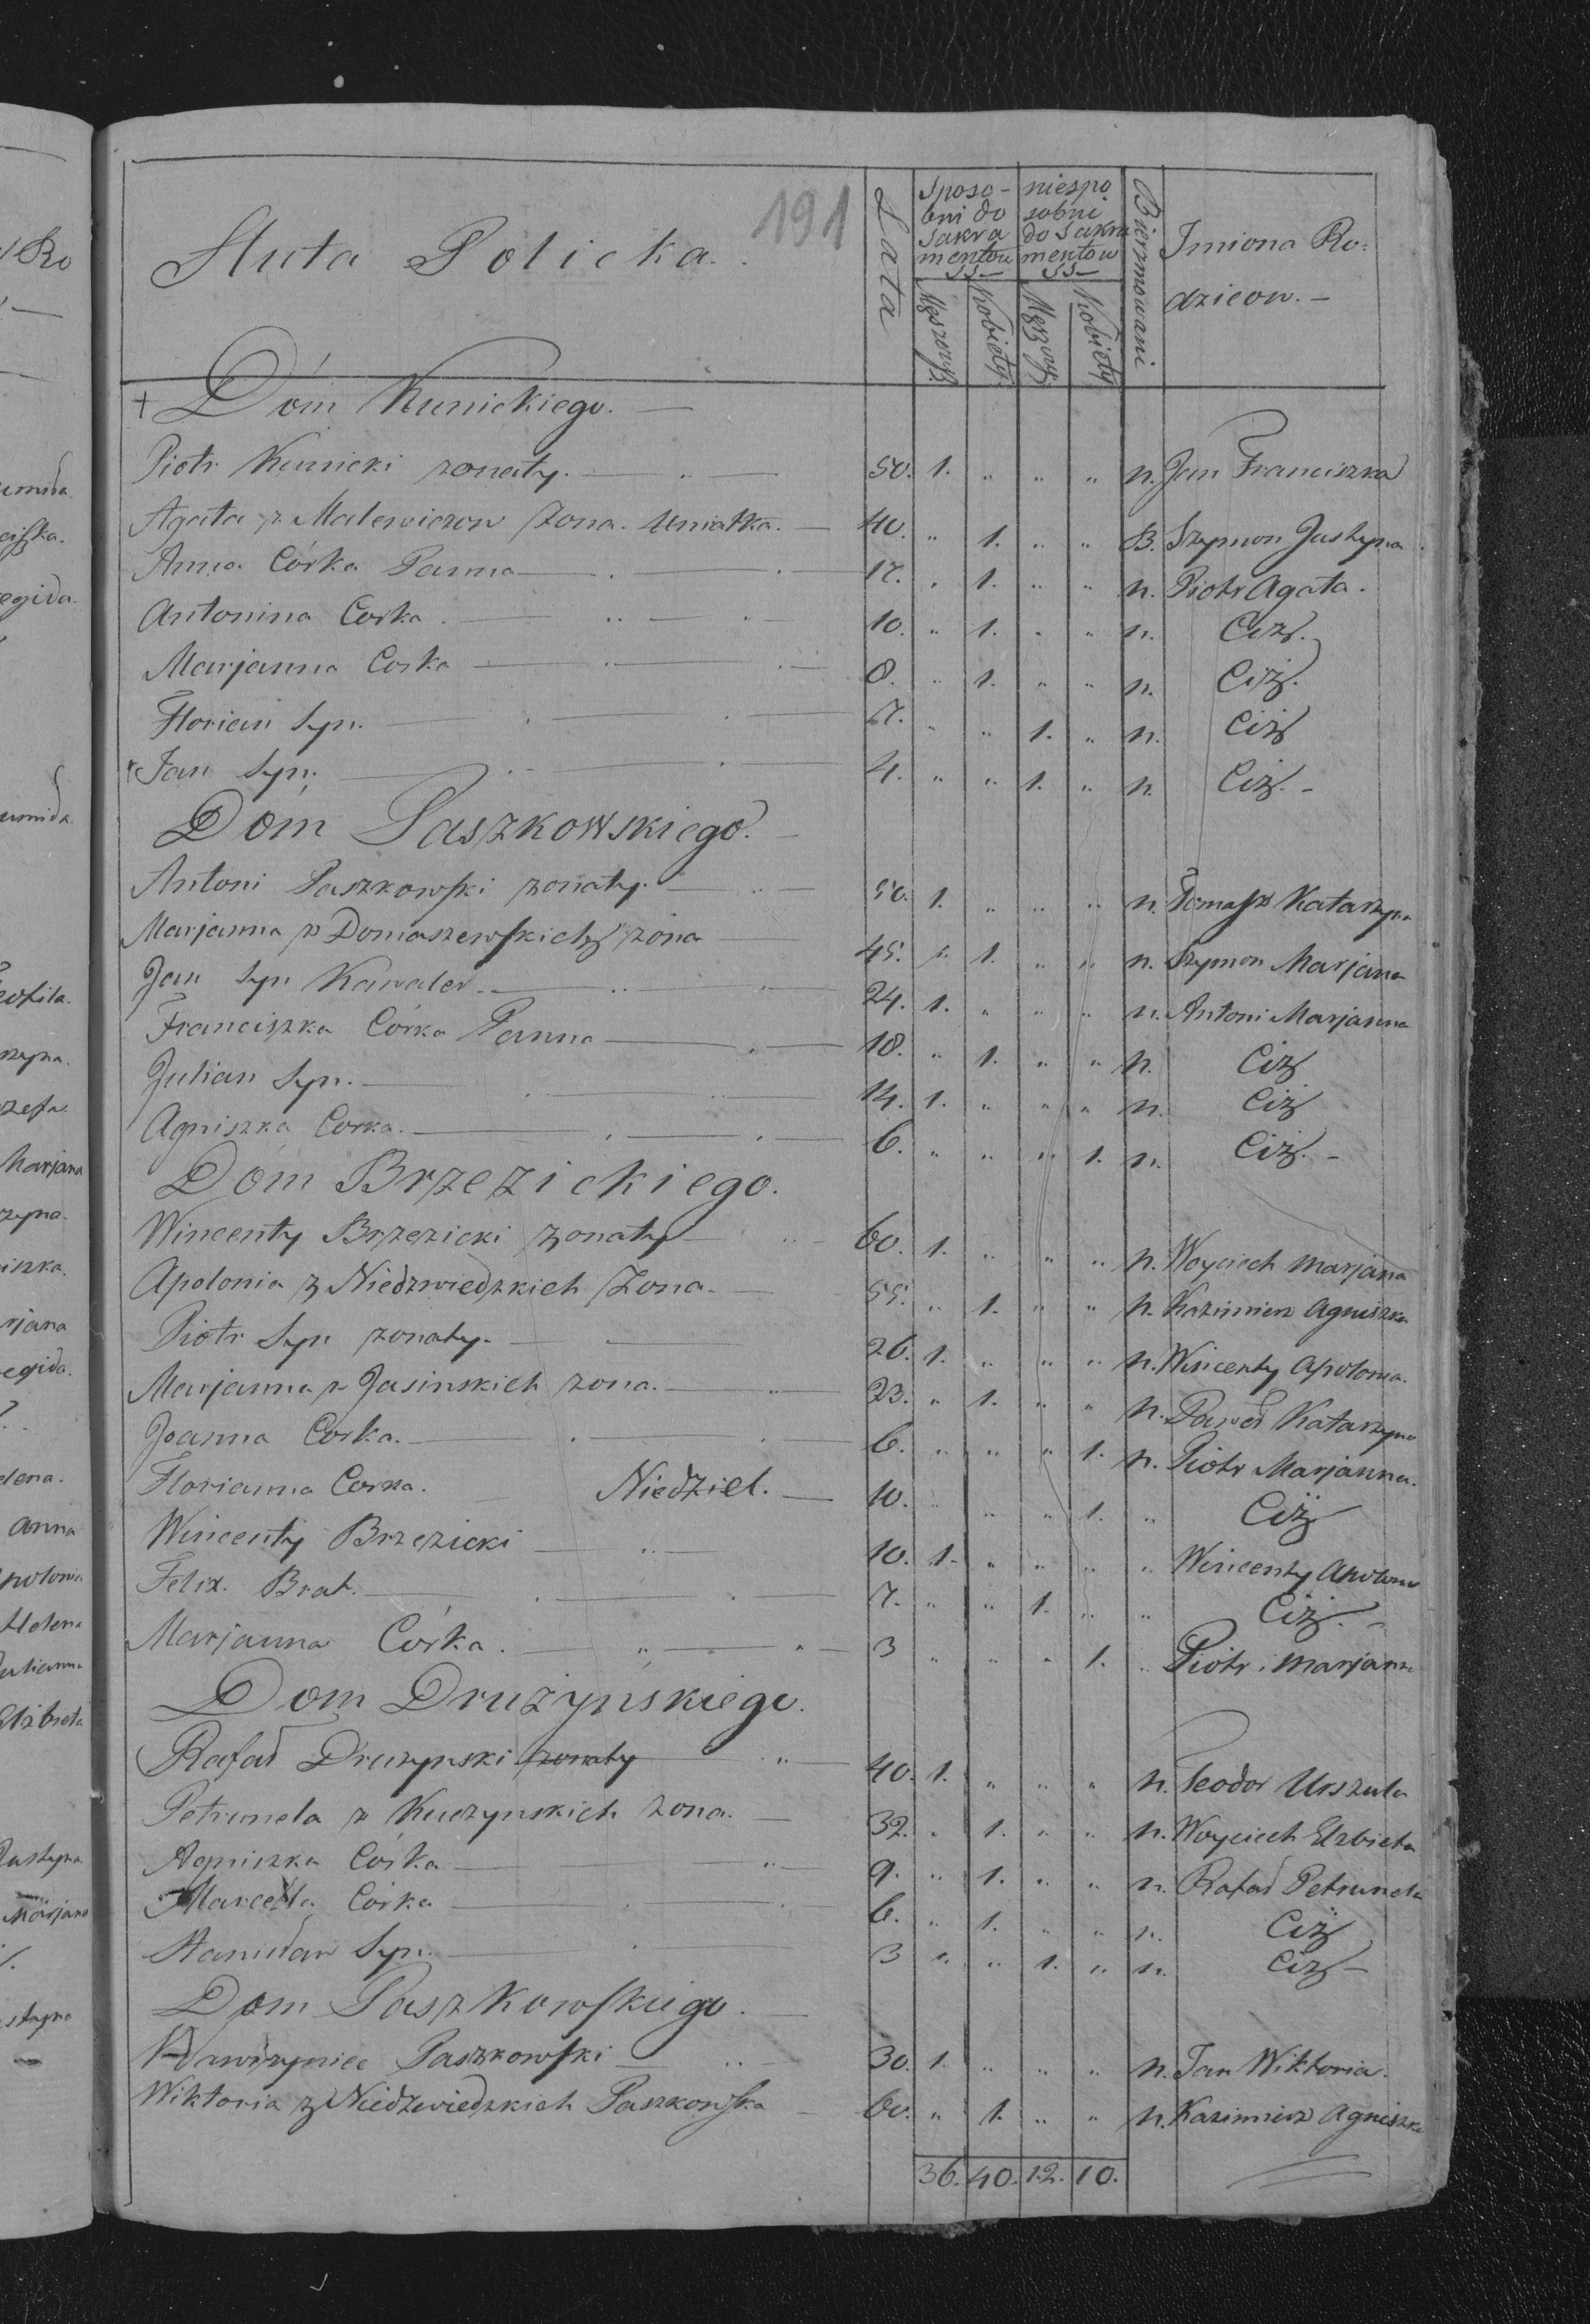 191
Huta Policka.
Lata
Sposobni do Sakramentów SS
niesposobni do Sakramentów SS
Męszczyź. Kobiety Męszczyź Kobiety
Bierzmowani
Imiona Rodziców.
+ Dóm Kunickiego.
Piotr Kunicki zonaty. 50. 1. " " " n. Jan Franciszka
Agata z Malewiczow Zona. Uniatka. 40. " 1. " " B. Szymon Justyna
Anna Córka Panna 17. " 1. " " n. Piotr Agata.
Antonina Corka. 10. " 1. " " n. Ciż.
Marjanna Corka 8. " 1. " " n. Ciż.
Florian Syn. 7. " " 1. " n. Ciż
+ Jan Syn. 4. " " 1. " n. Ciż.
Dóm Paszkowskiego.
Antoni Paszkowski zonaty. 50. 1. " " " n. Tomasz Katarzyna
Marjanna z Domaszewskich żona 45. " 1. " " n. Szymon Marjana
Jan Syn Kawaler. 24. 1. " " " n. Antoni Marjanna
Franciszka Córka Panna 18. " 1. " " n. Ciż
Julian Syn. 14. 1. " " " n. Ciż
Agniszka Corka. 6. " " " 1. n. Ciż.
Dóm Brzezickiego.
Wincenty Brzezicki zonaty 60. 1. " " " n. Woyciech Marjana
Apolonia z Niedzwiedzkich Zona. 55. " 1. " " n. Kazimierz Agniszka
Piotr Syn zonaty. 26. 1. " " " n. Wincenty Apolonia.
Marjanna z Jasinskich zona. 23. " 1. " " n. Paweł Katarzyna
Joanna Corka. 6. " " " 1. n. Piotr Marjanna.
Florianna Corka. Niedziel. 10. " " " 1. " Ciż
Wincenty Brzezicki 10. 1. " " " " Wincenty Apolonia
Felix. Brat. 7. " " 1. " " Ciż.
Marjanna Córka. 3 " " " 1. " Piotr i Marjanna
Dom Drużyńskiego.
Rafał Druzynski zonaty 40. 1. " " " n. Teodor Urszula
Petrunela z Kuczynskich zona. 32. " 1. " " n. Woyciech Elzbieta
Agniszka Córka 9. " 1. " " n. Rafał Petrunela
Marcella Córka 6. " 1. " " n. Ciż
Stanisław Syn. 3 " " 1. " n. Ciż
Dom Paszkowskiego.
Wawrzyniec Paszkowski 30. 1. " " " n. Jan Wiktoria.
Wiktoria z Niedzwiedzkich Paszkowska 60. " 1. " " n. Kazimierz Agniszka
36. 40. 12. 10.